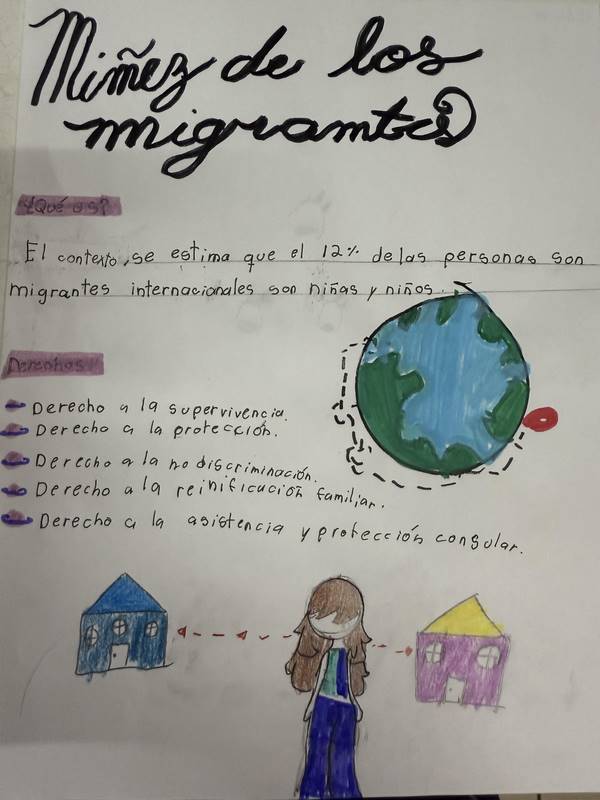 Niñez de los
migrantes
¿Qué es?
El contexto, se estima que el 12% de las personas son
migrantes internacionales son niñas y niños.
Derechos
Derecho a la supervivencia.
Derecho a la protección.
Derecho a la no discriminación.
Derecho a la reinificución familiar.
Derecho a la asistencia y protección consular.